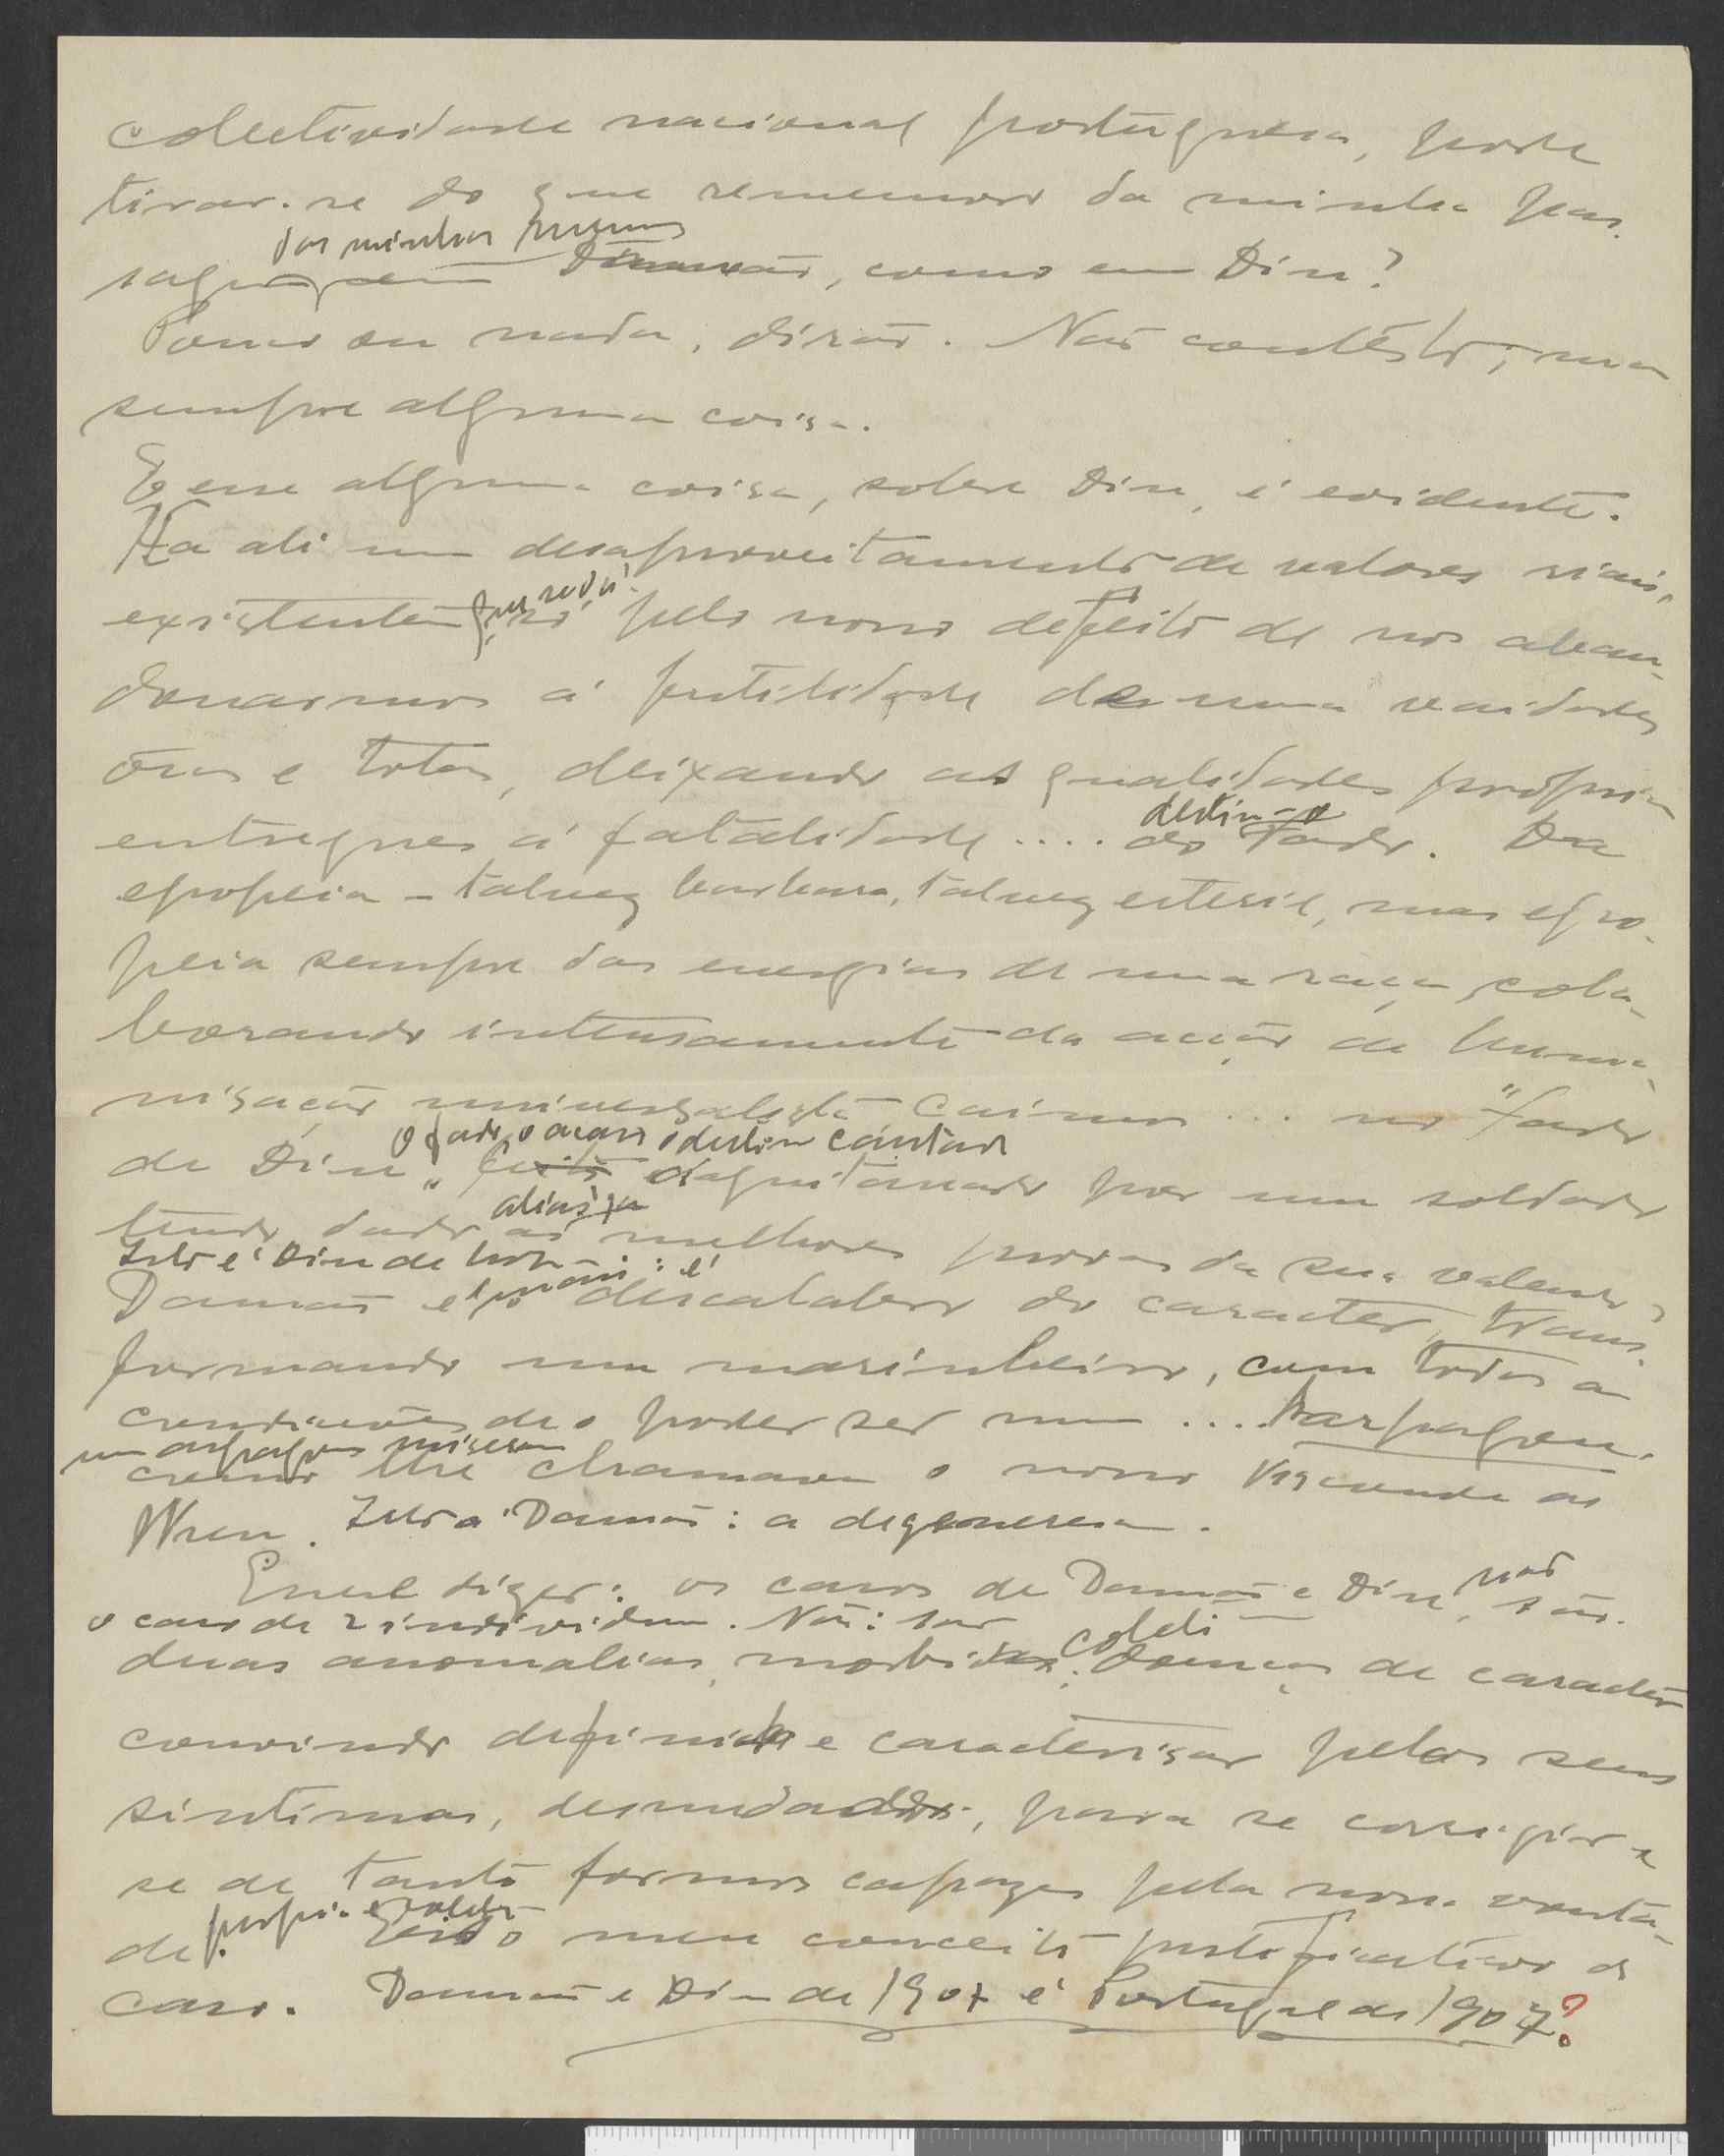 colectividade nacional portuguesa, pode
tirar-se do que rememoro da minha pas-
das minhas
sagem em Damão, como em Diu?
Pouco ou nada, dirão. Não contesto; mas
sempre alguma coisa.
E esse alguma coisa, sobre Diu, é evidente.
Ha ali um desaproveitamento de valores
existentes só pelo nosso defeito de nos aban-
donarmos á futilidade de uma vaidades
ôcas e tolas, deixando as qualidades proprias
destino
entregues á fatalidade .... do Fado. Da
epopeia - talvez barbara, talvez esteril, mas epo-
peia sempre das energias de uma raça, cola-
borando intensamente da acção de huma-
nisação universalista caimos ... no "Fado
o fado, o acaso o destino cantado
de Diu" dedilhado por um soldado
aliás
tendo dado as melhores provas da seu valor
Isto é Diu de hoje
Damão é o descalabro do caracter, trans-
formando um marinheiro, com todas as
condicções de o poder ser num ... harpagon.
um harpagon
como lhe chamava o nosso Visconde de
Wren. Isto a Damão: a degenerescencia.
Quere dizer: os casos de Damão e Diu, não são.
o caso de 2 individuos. Não: são
duas anomalias, morbidas; doenças de caracter
convindo definir e caracterisar pelos seus
sintomas, desnudados, para se corrigir
se de tanto formos capazes pela nossa vonta-
propria
de. Eis o meu conceito justificativo do
caso. Damão e Diu de 1907 é Portugal de 1907?